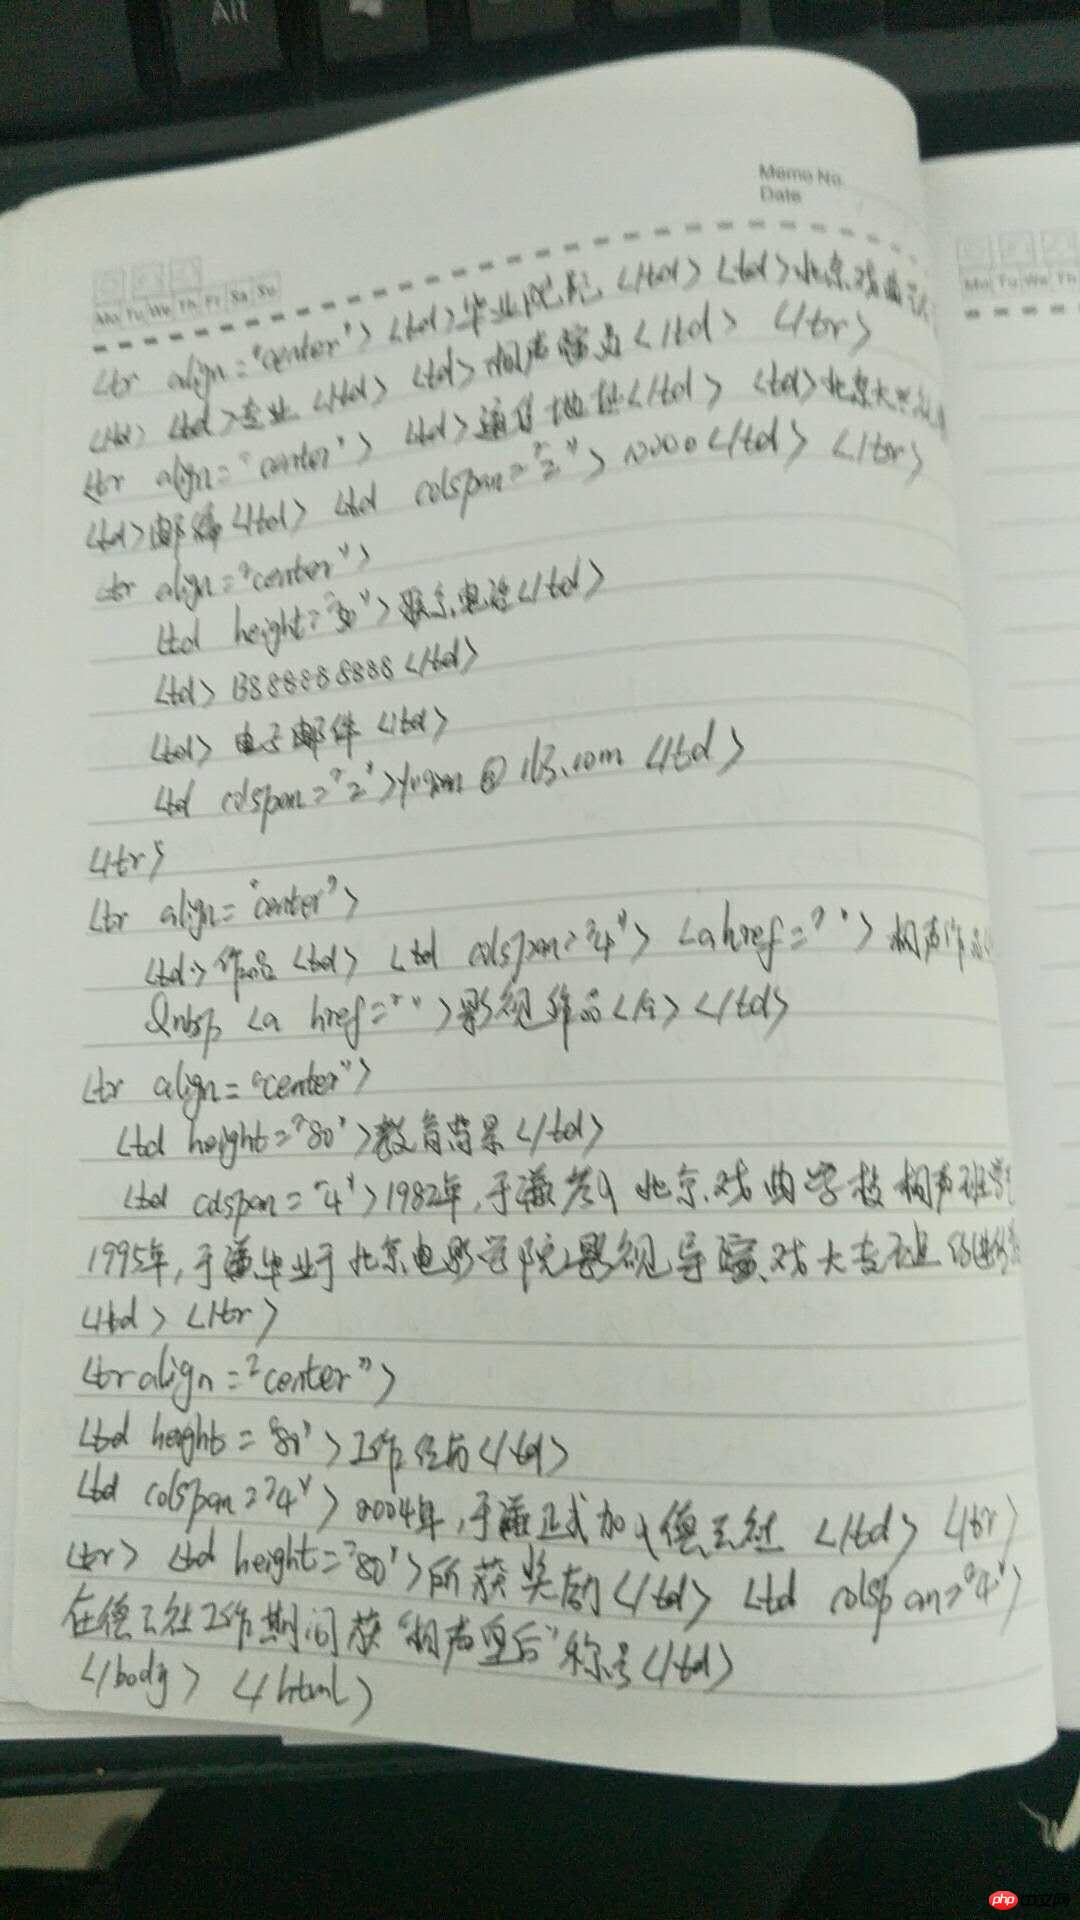 Alt
Memo No.
Date
Mo Tu We Th Fr Sa Su
Mo Tu We Th
<tr align="center"> <td>毕业院校 </td> <td>北京戏曲
<td> <td>专业 </td> <td>相声演员</td> </tr>
<tr align="center"> <td>通信地址</td> <td>北京大兴
<td>邮编</td> <td colspan="2"> </td> </tr>
<tr align="center">
<td height="30">联系电话</td>
<td> 13888888888</td>
<td> 电子邮件 </td>
<td colspan="2"> @ 163.com </td>
</tr>
<tr align="center">
<td>作品 <td> <td colspan="4"> <a href=" "> 相声作品
&nbsp <a href=" ">影视作品</a> </td>
<tr align="center">
<td height="80">教育背景</td>
<td colspan="4">1982年,于谦考入 北京戏曲学校相声班
1995年,于谦毕业于北京电影学院影视导演戏大专班
</td> </tr>
<tr align="center">
<td height="80">工作经历</td>
<td colspan="4">2004年,于谦正式加入德云社 </td> </tr
<tr> <td height="80">所获奖励</td> <td colspan="4">
在德云社工作期间获“相声皇后”称号</td>
</body> </html>
php中文网